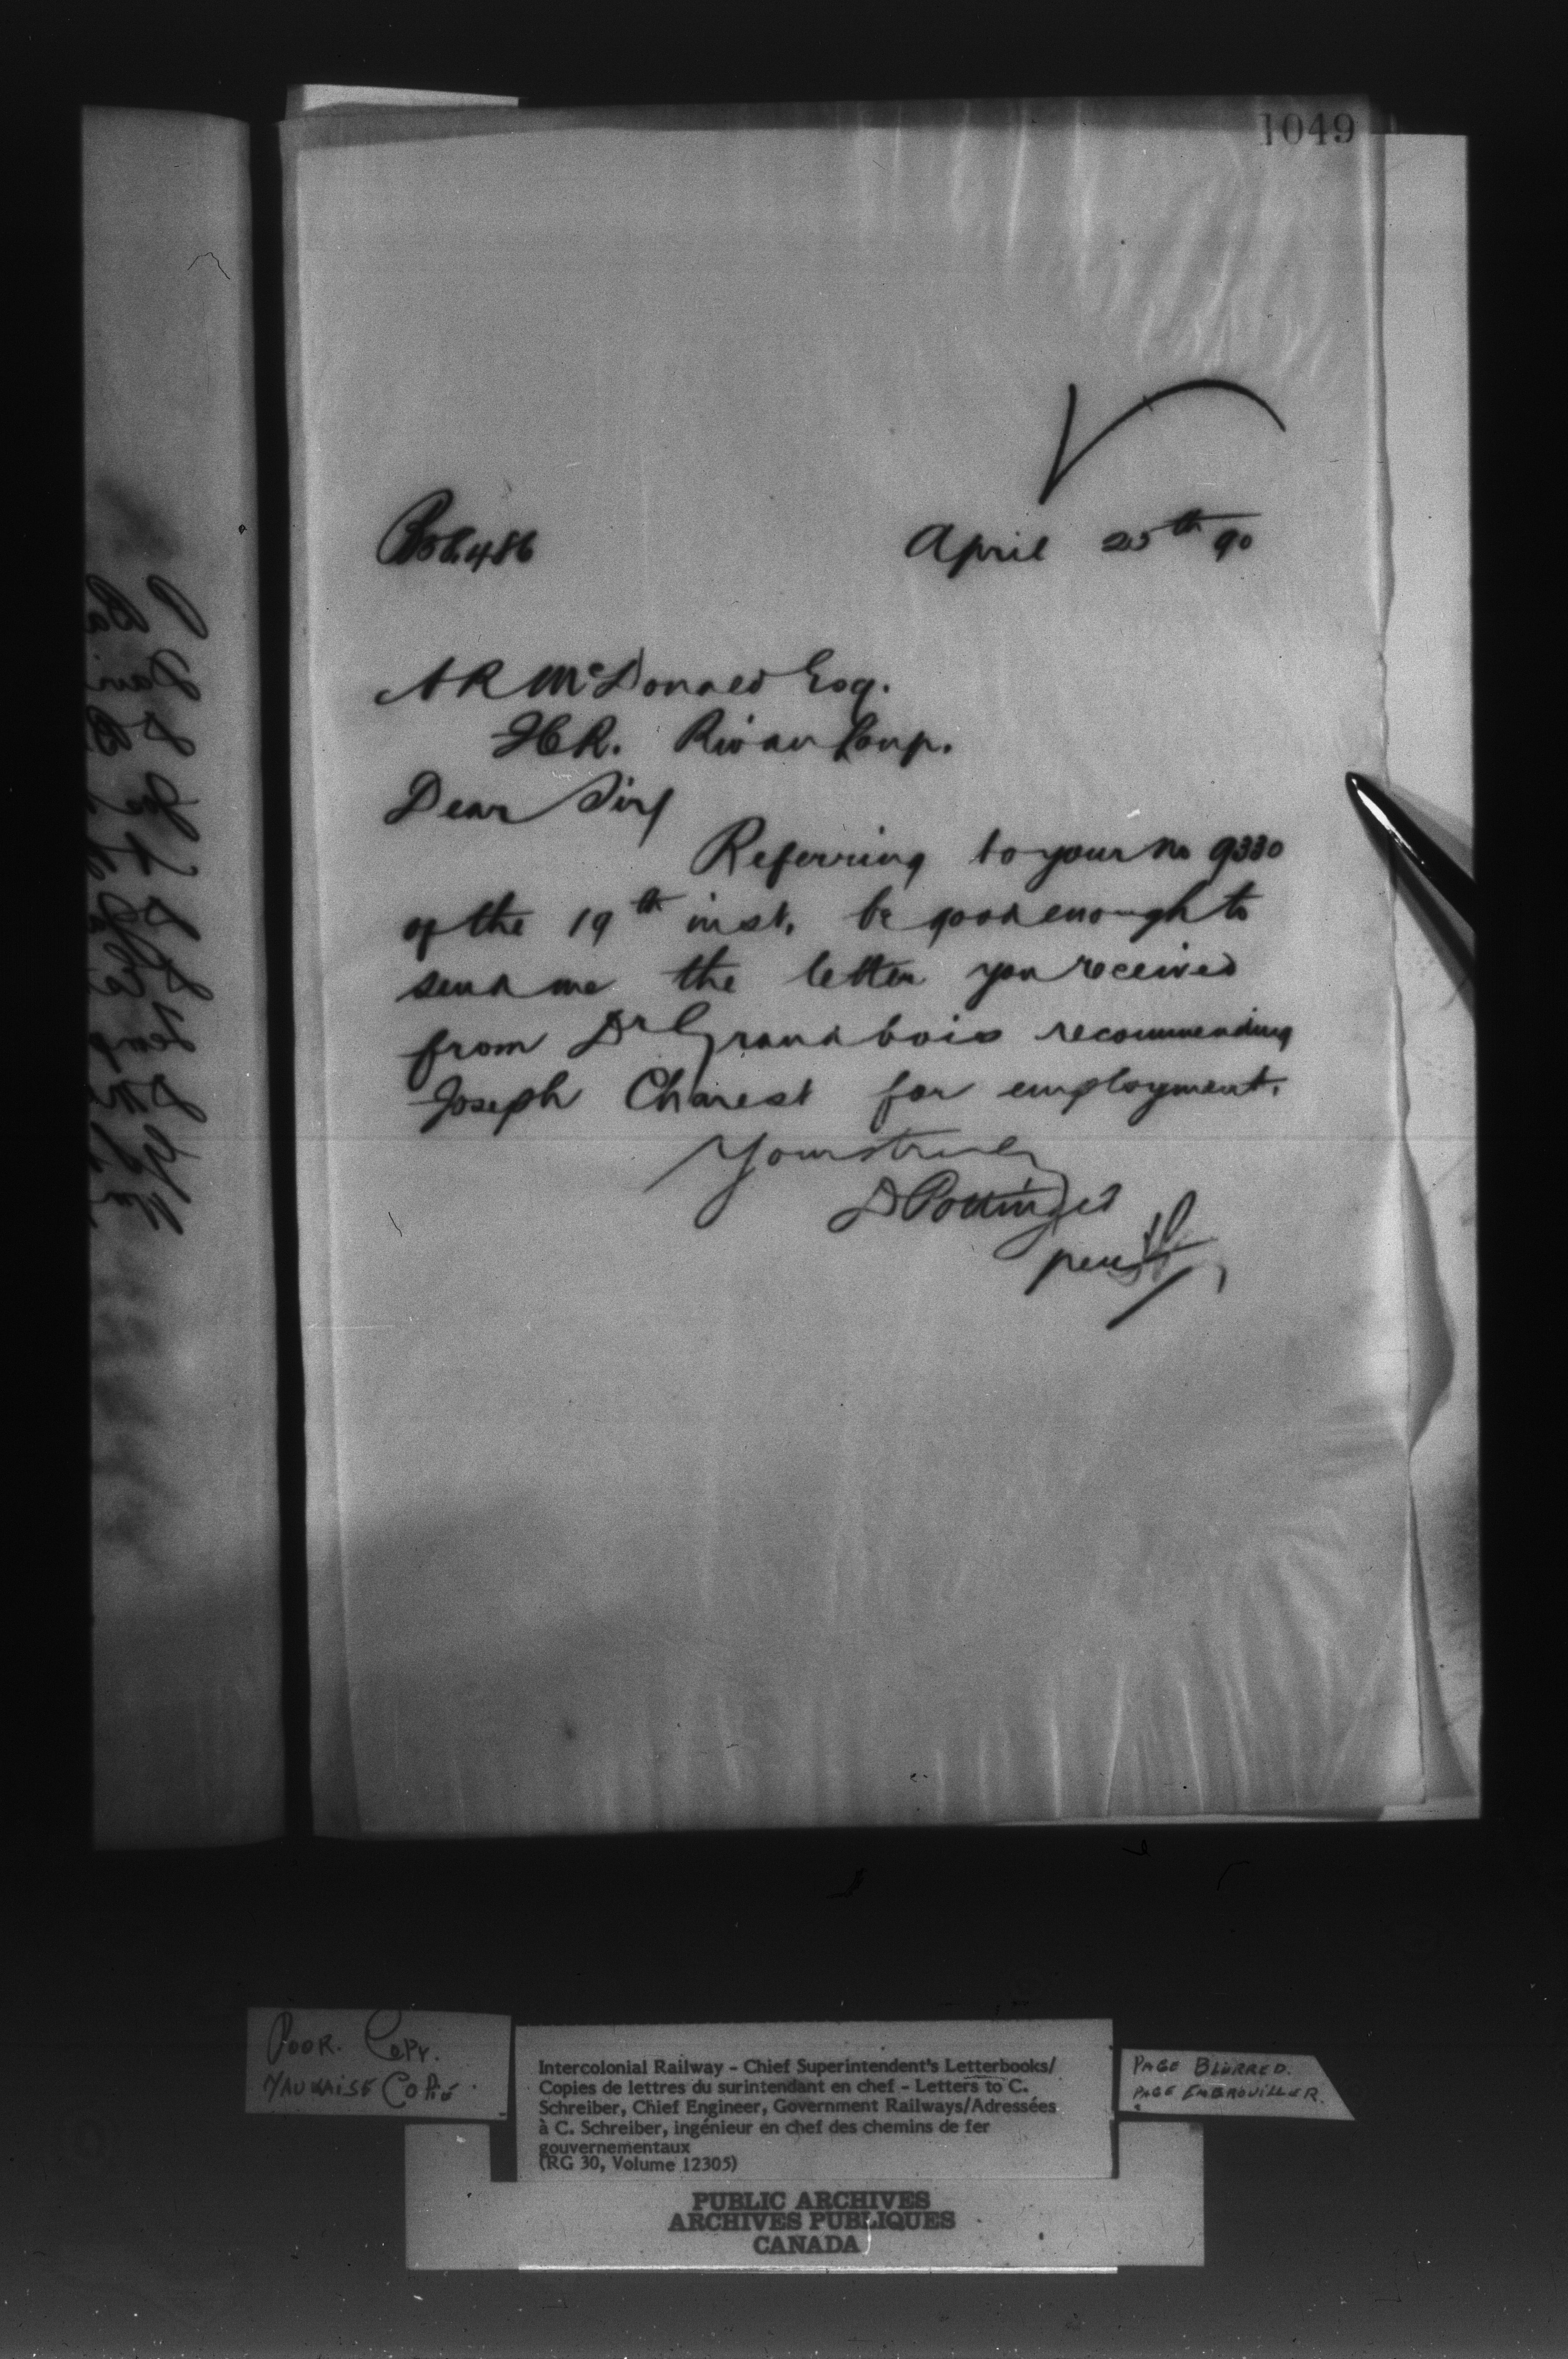 1049
April 25th 90
A R McDonald Esq.
ICR. Riv au Loup.
Dear Sir/
Referring to your No 9330
of the 19th inst. be good enough to
send me the letter you received
from Dr Grandbois recommending
Joseph Charest for employment.
Yours truly
D Pottinger
per
POOR. COPY.
MAUVAISE COPIE.
Intercolonial Railway – Chief Superintendent's Letterbooks/
Copies de lettres du surintendant en chef – Letters to C.
Schreiber, Chief Engineer, Government Railways/Adressées
à C. Schreiber, ingénieur en chef des chemins de fer
gouvernementaux
(RG 30, Volume 12305)
PAGE BLURRED.
PAGE EMBROUILLER.
PUBLIC ARCHIVES
ARCHIVES PUBLIQUES
CANADA